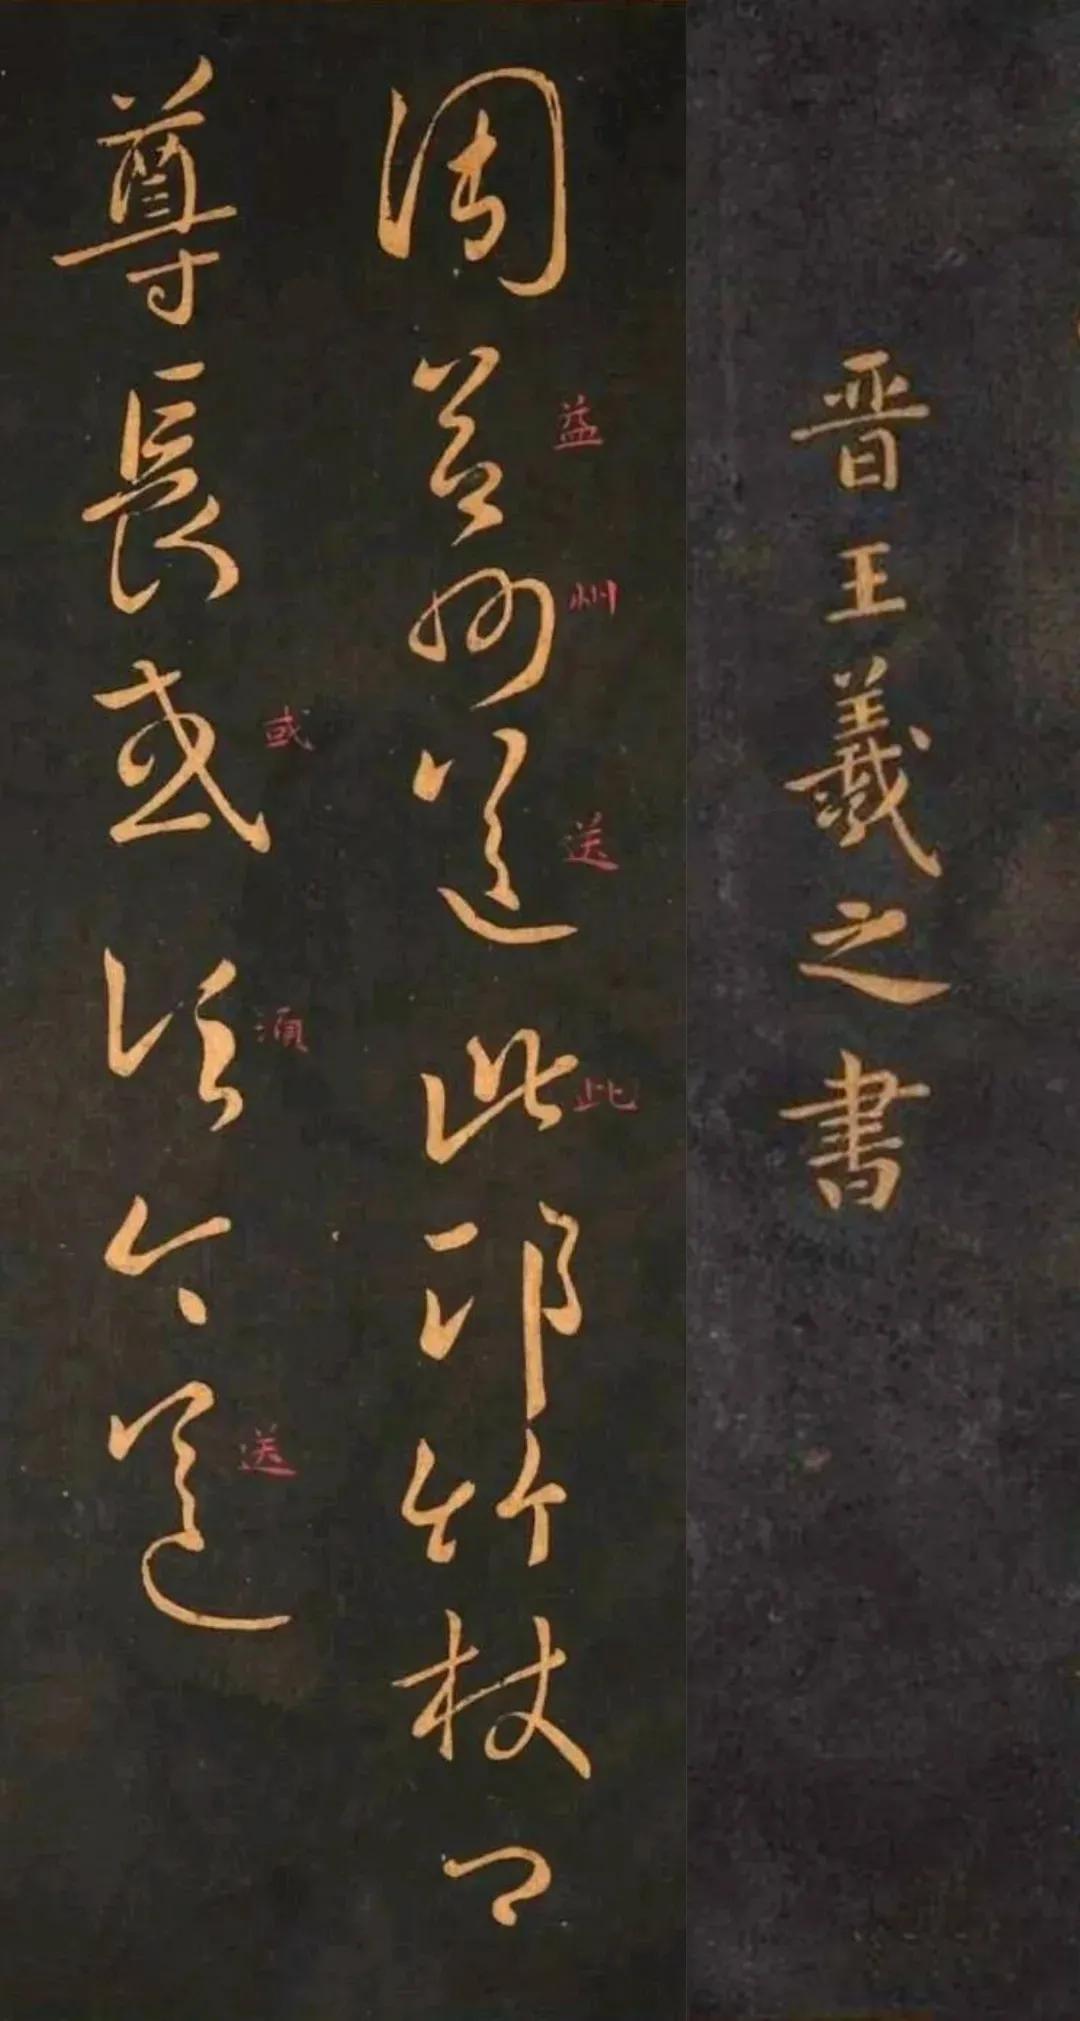 晋王羲之書
周益州送此邛竹杖卿
益
州
送
此
尊長或須今送
或
湏
送